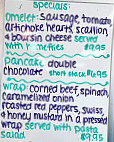 Specials
omelet: sausage, tomato
artichoke hearts, scallion,
& boursin cheese served
with homefries $9.95
pancake double
chocolate short stack $6.95
wrap: corned beef, spinach,
caramelized onion
roasted red peppers, swiss,
& honey mustard in a pressed
wrap served with pasta
salad $9.95